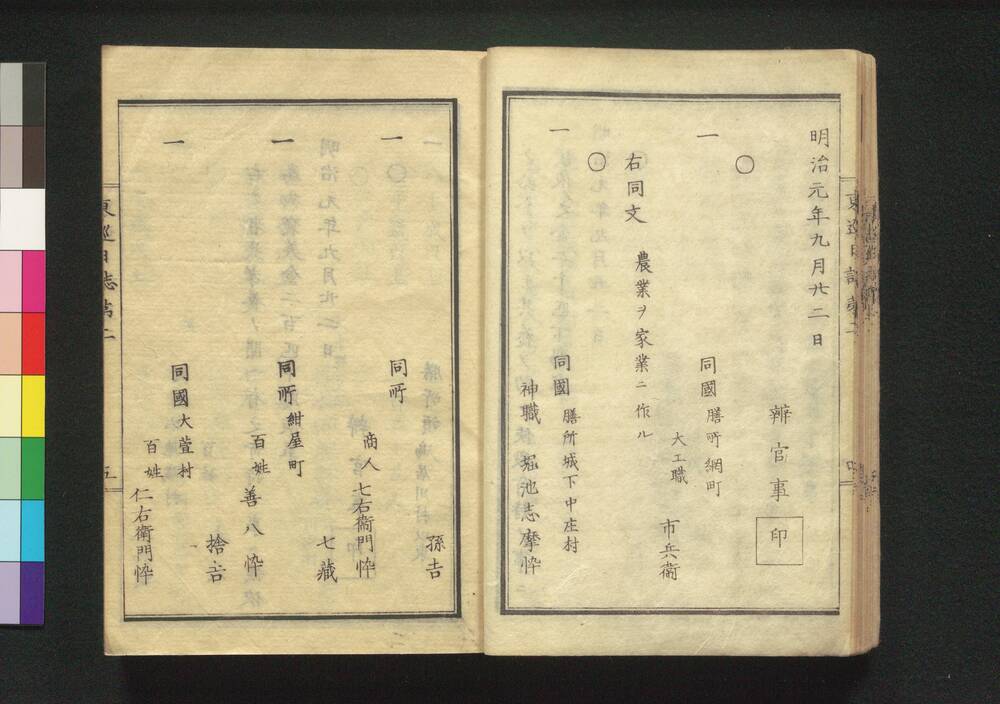 明治元年九月廿二日
辨官事 印
〇
一 同國 膳所網町
大工職
市兵衛
右同文 農業ヲ家業ニ作ル
〇
一 同國 膳所城下中庄村
神職 堀池志摩悴
孫吉
〇
一 同所
商人 七右衞門悴
七藏
一 同所 紺屋町
百姓 善八悴
捨吉
一 同國 大萱村
百姓 仁右衞門悴
東巡日誌第二
五